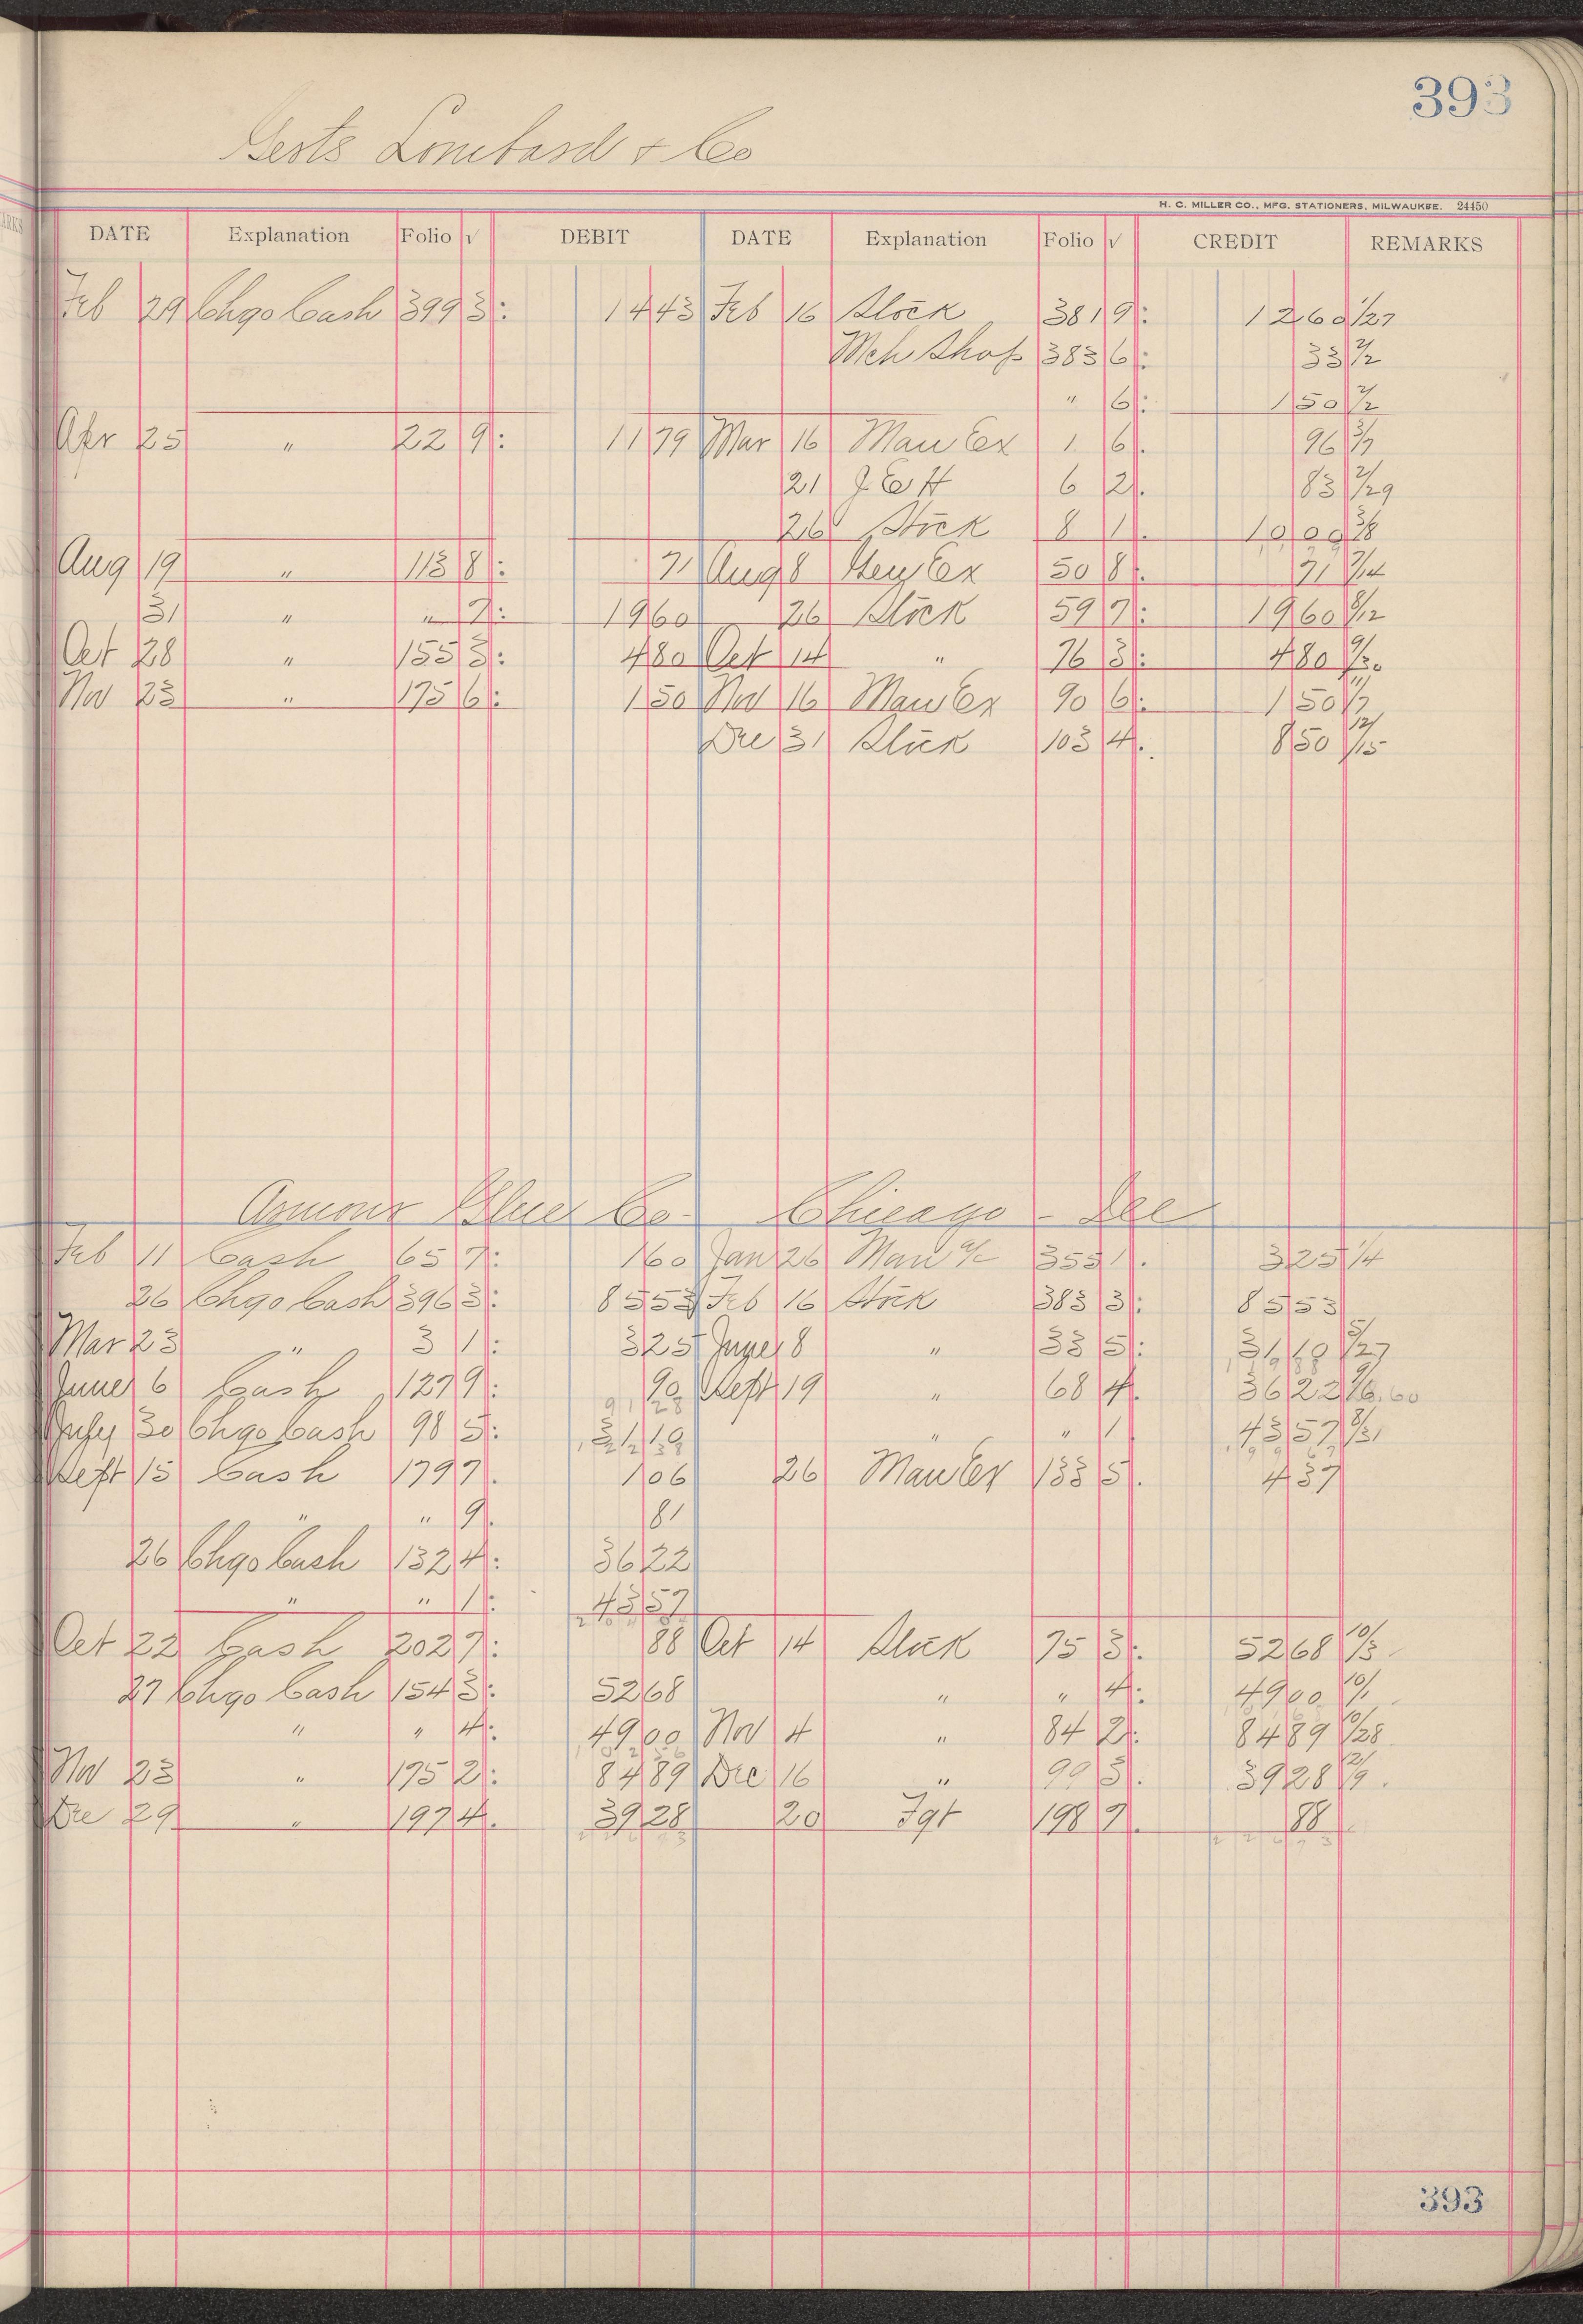 393
Gerts Lombard & Co
H. C. MILLER CO., MFG. STATIONERS, MILWAUKEE. 24450
DATE Explanation Folio √ DEBIT DATE Explanation Folio √ CREDIT REMARKS
Feb 29 Chgo Cash 399 3 1443 Feb 16 Stock 381 9 1260 1/27
Mch Shop 383 6 33 2/2
" 6 150 2/2
Apr 25 " 22 9 1179 Mar 16 Man Ex 1 6 96 3/7
21 J E H 6 2 83 2/29
26 Stock 8 1 1000 3/8
Aug 19 " 113 8 71 Aug 8 Ex 50 8 71 7/14
31 " " 7 1960 26 Stock 59 7 1960 8/12
Oct 28 " 155 3 480 Oct 14 " 76 3 480
Nov 23 " 175 6 150 Nov 16 Man Ex 90 6 150
Dec 31 Stock 103 4 850 12/15
Armour Glue Co Chicago - Ill
Feb 11 Cash 65 7 160 Jan 26 Man a/c 355 1 325 1/4
26 Chgo Cash 396 3 8553 Feb 16 Stock 383 3 8553
Mar 23 " 3 1 325 June 8 " 33 5 3119 5/27
June 6 Cash 127 9 90 Sept 19 " 68 4 3622
July 30 Chgo Cash 98 5 3119 " " 1 4357 8/31
Sept 15 Cash 179 7 106 26 Man Ex 133 5 437
" " 9 81
26 Chgo Cash 132 4 3622
" " 1 4357
Oct 22 Cash 202 7 88 Oct 14 Stock 75 3 5268 10/3
27 Chgo Cash 154 3 5268 " " 4 4900 10/1
" " 4 4900 Nov 4 " 84 2 8489 10/28
Nov 23 " 175 2 8489 Dec 16 " 99 3 3928 12/9
Dec 29 " 197 4 3928 20 Fgt 198 7 88
393